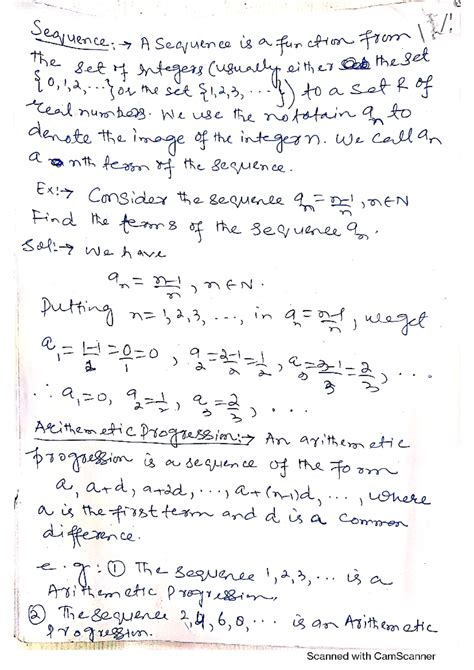 Sequence :→ A sequence is a function from
the set of integers (usually either the set
{0,1,2,...} or the set {1,2,3,...}) to a set R of
real numbers. We use the notatain aₙ to
denote the image of the integer n. We call aₙ
a nth term of the sequence.
Ex:→ Consider the sequence aₙ = n-1/n, n∈N
Find the terms of the sequence aₙ.
Sol:→ We have
aₙ = n-1/n, n∈N.
Putting n=1,2,3, ..., in aₙ = n-1/n, we get
a₁ = 1-1/1 = 0/1 = 0, a₂ = 2-1/2 = 1/2, a₃ = 3-1/3 = 2/3, ...
∴ a₁=0, a₂=1/2, a₃=2/3, ...
Arithemetic Progression:→ An arithemetic
progression is a sequence of the form
a, a+d, a+2d, ..., a+(n-1)d, ..., where
a is the first term and d is a common
difference.
e.g: ① The sequence 1,2,3, ... is a
Arithemetic Progression.
② The sequence 2,4,6,8, ... is an Arithemetic
Progression.
Scanned with CamScanner